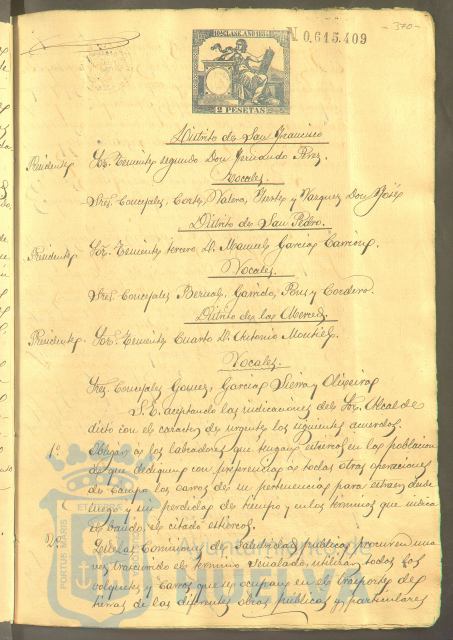 10ª CLASE. AÑO 1884
2 PESETAS
N 0.615.409
370
Distrito de San Francisco
Presidente Sor. Teniente segundo Don Fernando Perez.
Vocales.
Sres. Concejales, Cortes, Valera, y Vazquez Don José
Distrito de San Pedro.
Presidente Sor. Teniente tercero D. Manuel Garcia
Vocales.
Sres. Concejales Bernal, Garrido, Pons y Cordero.
Distrito de la Merced
Presidente Sor. Teniente Cuarto D. Antonio Montiel
Vocales.
Sres. Concejales Gomez, Garcia, Sierra y Oliveira
S.E. aceptando las indicaciones del Sor. Alcalde
dictó con el caracter de urgente los siguientes acuerdos.
1º Obligar a los labradores que tengan estiercol en la poblacion
a que dediquen con preferencia a todas otras operaciones
de campo los carros de su pertenencia para estraer desde
luego y sin perdida de tiempo y en los terminos que indica
el bando, el citado estiercol.
2º Que las Comisiones de Salubridad publica procuren una
vez trascurrido el termino señalado, utilizar todos los
volquetes y carros que se ocupan en el trasporte de
tierras de las diferentes obras publicas y particulares
PORTUS MARIS
Ayuntamiento de
HUELVA